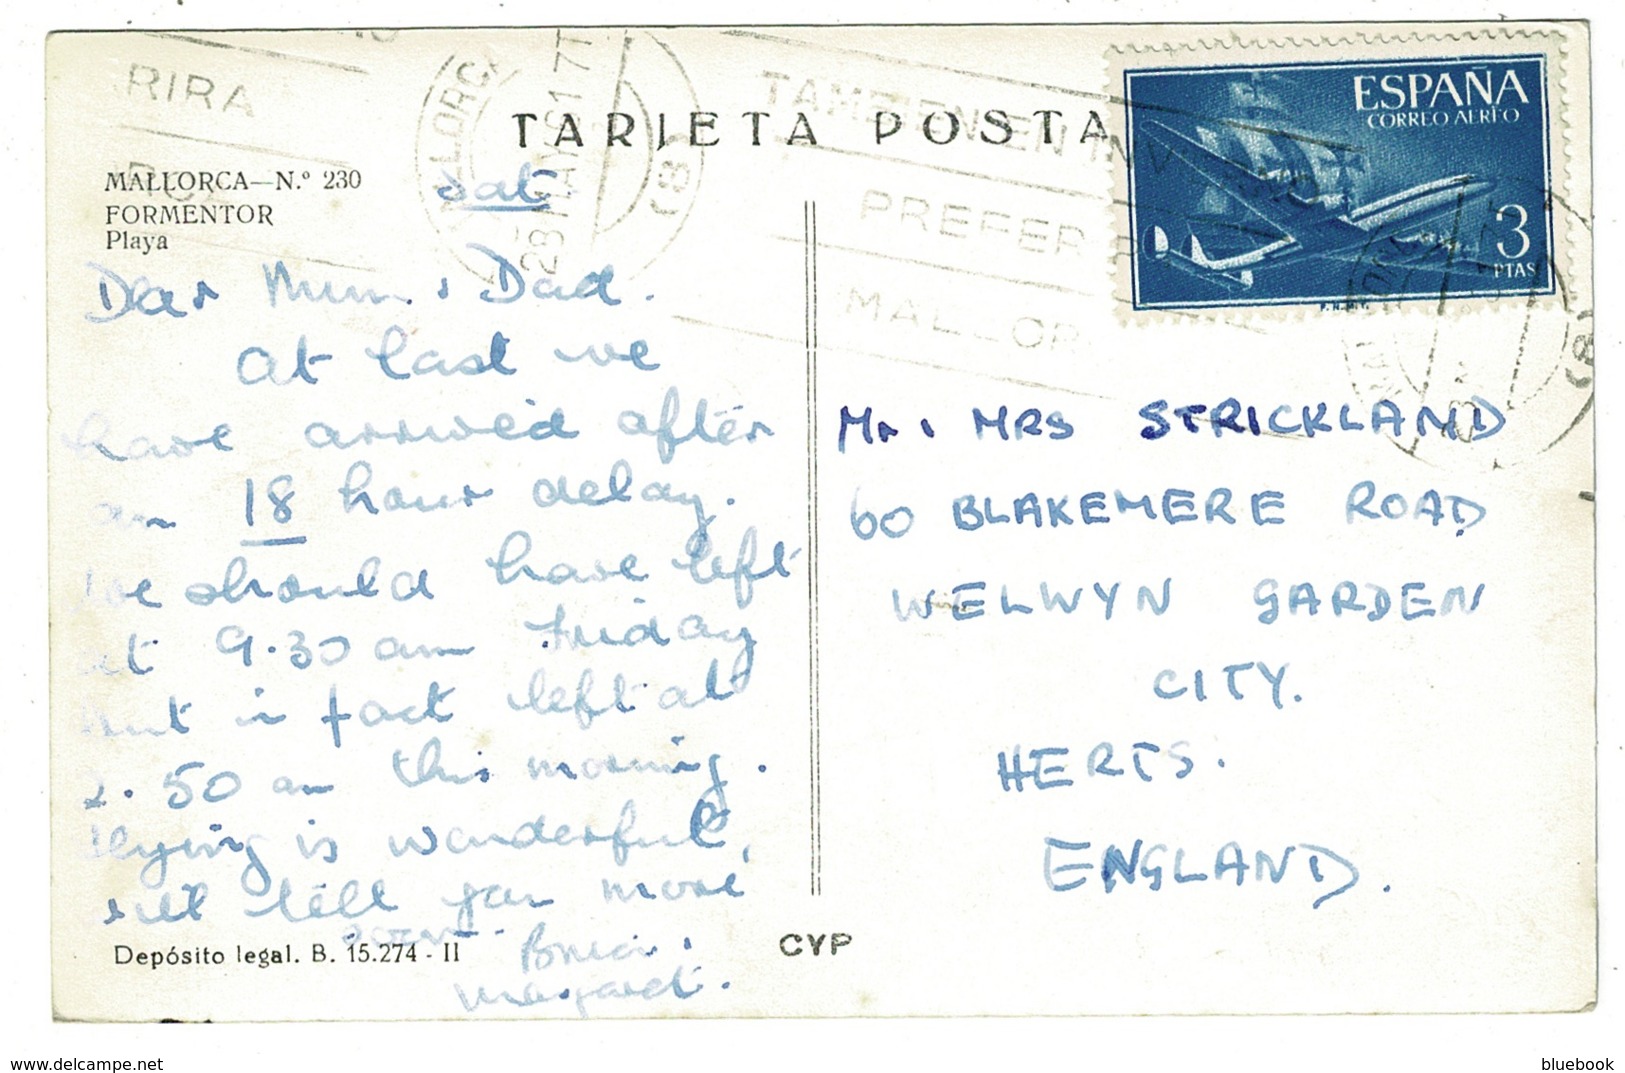 RIRA
MALLORCA
28 MAY 61 17
(8)
TAMBIEN EN INVIERNO
PREFER
MALLOR
TARJETA POSTA
ESPAÑA
CORREO AEREO
3
PTAS
F.N.M.T.
MALLORCA—N.º 230
FORMENTOR
Playa
Sat
Dear Mum & Dad.
At last we
have arrived after
an 18 hour delay.
We should have left
at 9.30 am Friday
but in fact left at
2.50 am this morning.
Flying is wonderful,
will tell you more
soon
Margaret.
Mr & MRS STRICKLAND
60 BLAKEMERE ROAD
WELWYN GARDEN
CITY.
HERTS.
ENGLAND.
Depósito legal. B. 15.274 - II
CYP
delcampe.net
bluebook